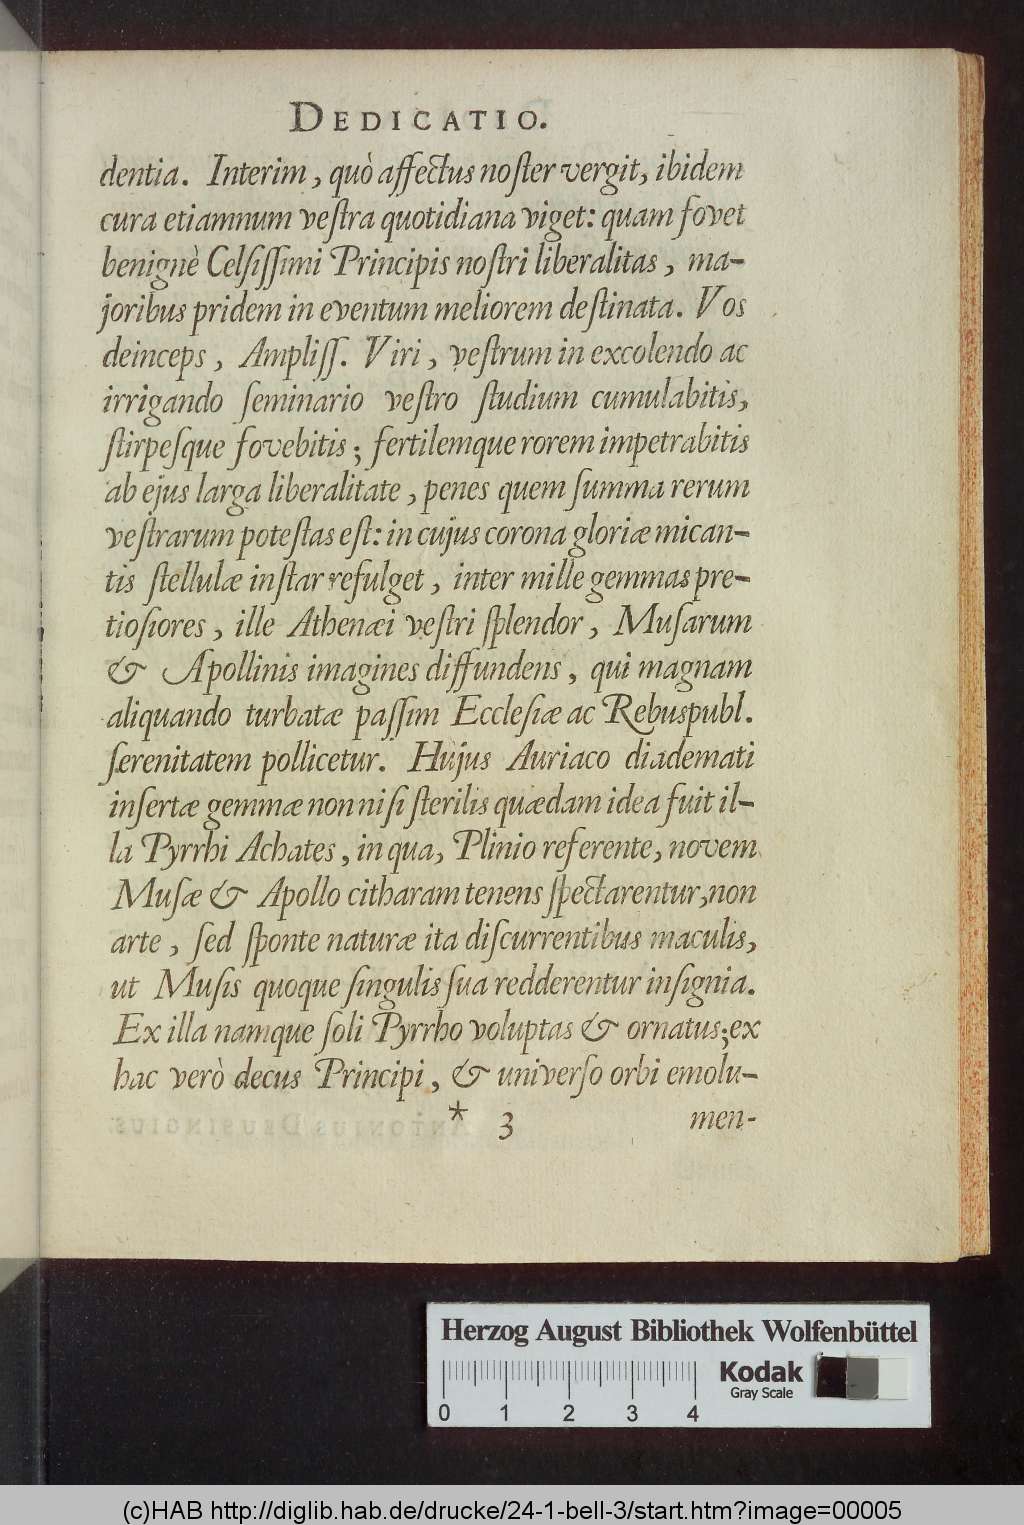 DEDICATIO.
dentia. Interim, quò affectus noſter vergit, ibidem
cura etiamnum veſtra quotidiana viget: quam fovet
benignè Celſiſſimi Principis noſtri liberalitas, ma-
joribus pridem in eventum meliorem deſtinata. Vos
deinceps, Ampliſſ. Viri, veſtrum in excolendo ac
irrigando ſeminario veſtro ſtudium cumulabitis,
ſtirpeſque fovebitis; fertilemque rorem impetrabitis
ab ejus larga liberalitate, penes quem ſumma rerum
veſtrarum poteſtas eſt: in cujus corona gloriæ mican-
tis ſtellulæ inſtar refulget, inter mille gemmas pre-
tioſiores, ille Athenæi veſtri ſplendor, Muſarum
& Apollinis imagines diffundens, qui magnam
aliquando turbatæ paſſim Eccleſiæ ac Rebuspubl.
ſerenitatem pollicetur. Hujus Auriaco diademati
inſertæ gemmæ non niſi ſterilis quædam idea fuit il-
la Pyrrhi Achates, in qua, Plinio referente, novem
Muſæ & Apollo citharam tenens ſpectarentur, non
arte, ſed ſponte naturæ ita diſcurrentibus maculis,
ut Muſis quoque ſingulis ſua redderentur inſignia.
Ex illa namque ſoli Pyrrho voluptas & ornatus; ex
hac verò decus Principi, & univerſo orbi emolu-
* 3 men-
Herzog August Bibliothek Wolfenbüttel
Kodak
Gray Scale
0 1 2 3 4
(c)HAB http://diglib.hab.de/drucke/24-1-bell-3/start.htm?image=00005